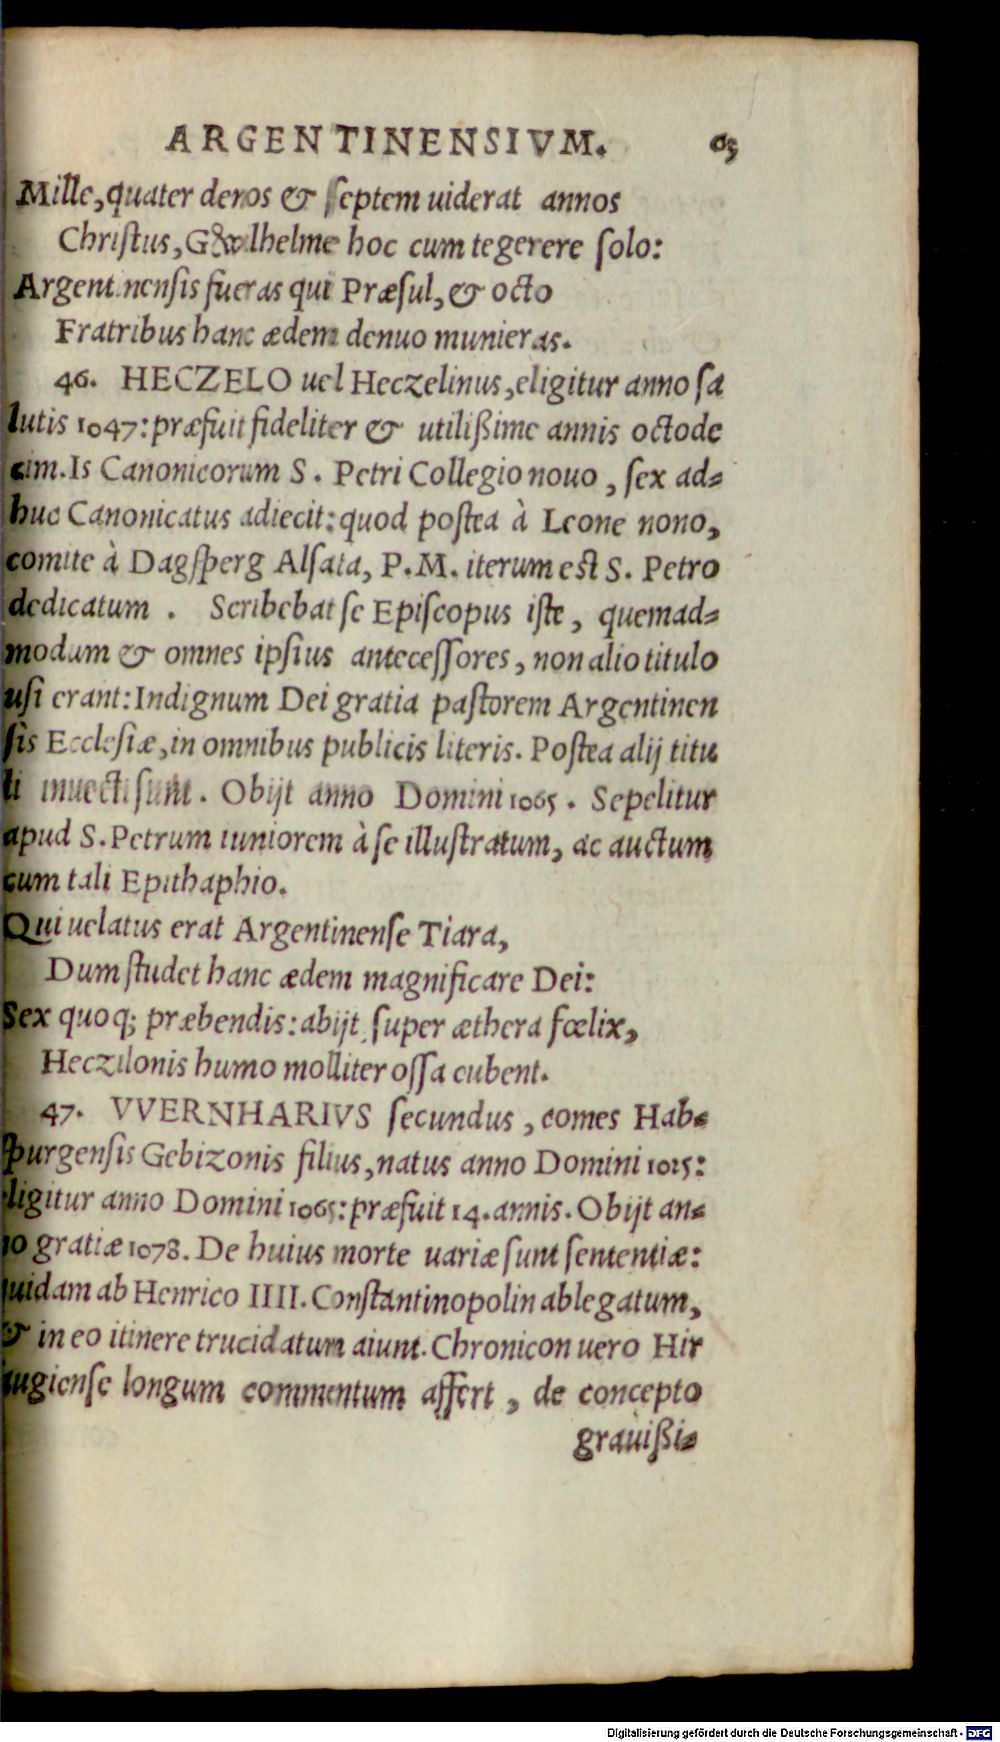 ARGENTINENSIVM.
Mille, quater denos & septem uiderat annos
Christus, hoc cum tegerere solo:
Argentinensis fueras qui Præsul, & octo
Fratribus hanc ædem denuo munieras.
46. HECZELO uel Heczelinus, eligitur anno sa
lutis 1047: præfuit fideliter & utilißime annis octode
cim. Is Canonicorum S. Petri Collegio nouo, sex ad-
huc Canonicatus adiecit: quod postea à Leone nono,
comite à Dagsperg Alsata, P.M. iterum est S. Petro
dedicatum. Scribebat se Episcopus iste, quemad-
modum & omnes ipsius antecessores, non alio titulo
usi erant: Indignum Dei gratia pastorem Argentinen
sis Ecclesiæ, in omnibus publicis literis. Postea alij titu
li inuecti sunt. Obijt anno Domini 1065. Sepelitur
apud S. Petrum iuniorem à se illustratum, ac auctum
cum tali Epithaphio.
Qui uelatus erat Argentinense Tiara,
Dum studet hanc ædem magnificare Dei:
Sex quoq; præbendis: abijt super æthera fœlix,
Heczilonis humo molliter ossa cubent.
47. VVERNHARIVS secundus, comes Hab-
spurgensis Gebizonis filius, natus anno Domini 1025:
eligitur anno Domini 1065: præfuit 14. annis. Obijt an-
no gratiæ 1078. De huius morte uariæ sunt sententiæ:
quidam ab Henrico IIII. Constantinopolin ablegatum,
& in eo itinere trucidatum aiunt. Chronicon uero Hir
saugiense longum commentum affert, de concepto
grauißi-
Digitalisierung gefördert durch die Deutsche Forschungsgemeinschaft - DFG